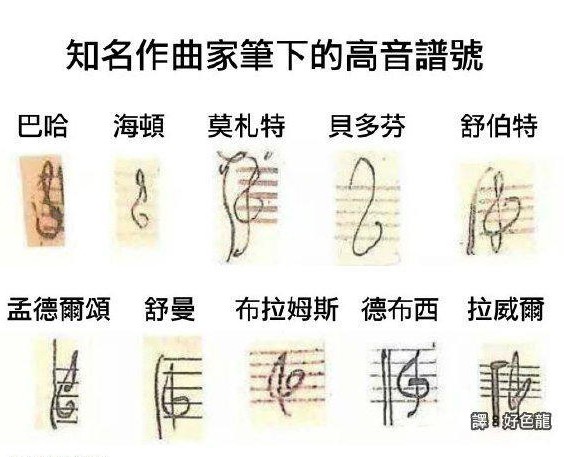 知名作曲家筆下的高音譜號
巴哈 海頓 莫札特 貝多芬 舒伯特
孟德爾頌 舒曼 布拉姆斯 德布西 拉威爾
譯：好色龍